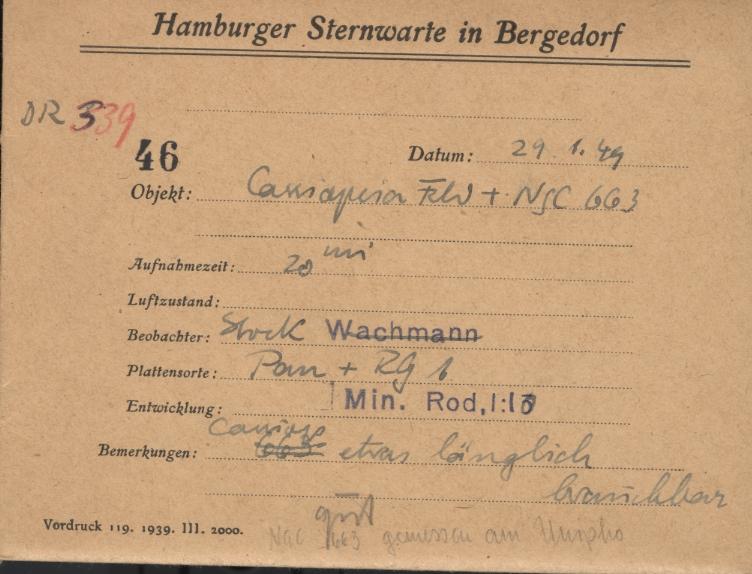 Hamburger Sternwarte in Bergedorf
DR 339
46
Datum: 29. 1. 49
Objekt: Cassiopeia Feld + NGC 663
Aufnahmezeit: 20 mi
Luftzustand:
Beobachter: Stock Wachmann
Plattensorte: Pan + RG 1
Entwicklung: Min. Rod, 1:
Bemerkungen: Cassiop 663 etwas länglich
brauchbar
gut
Vordruck 119. 1939. III. 2000.
NGC 663 gemessen am